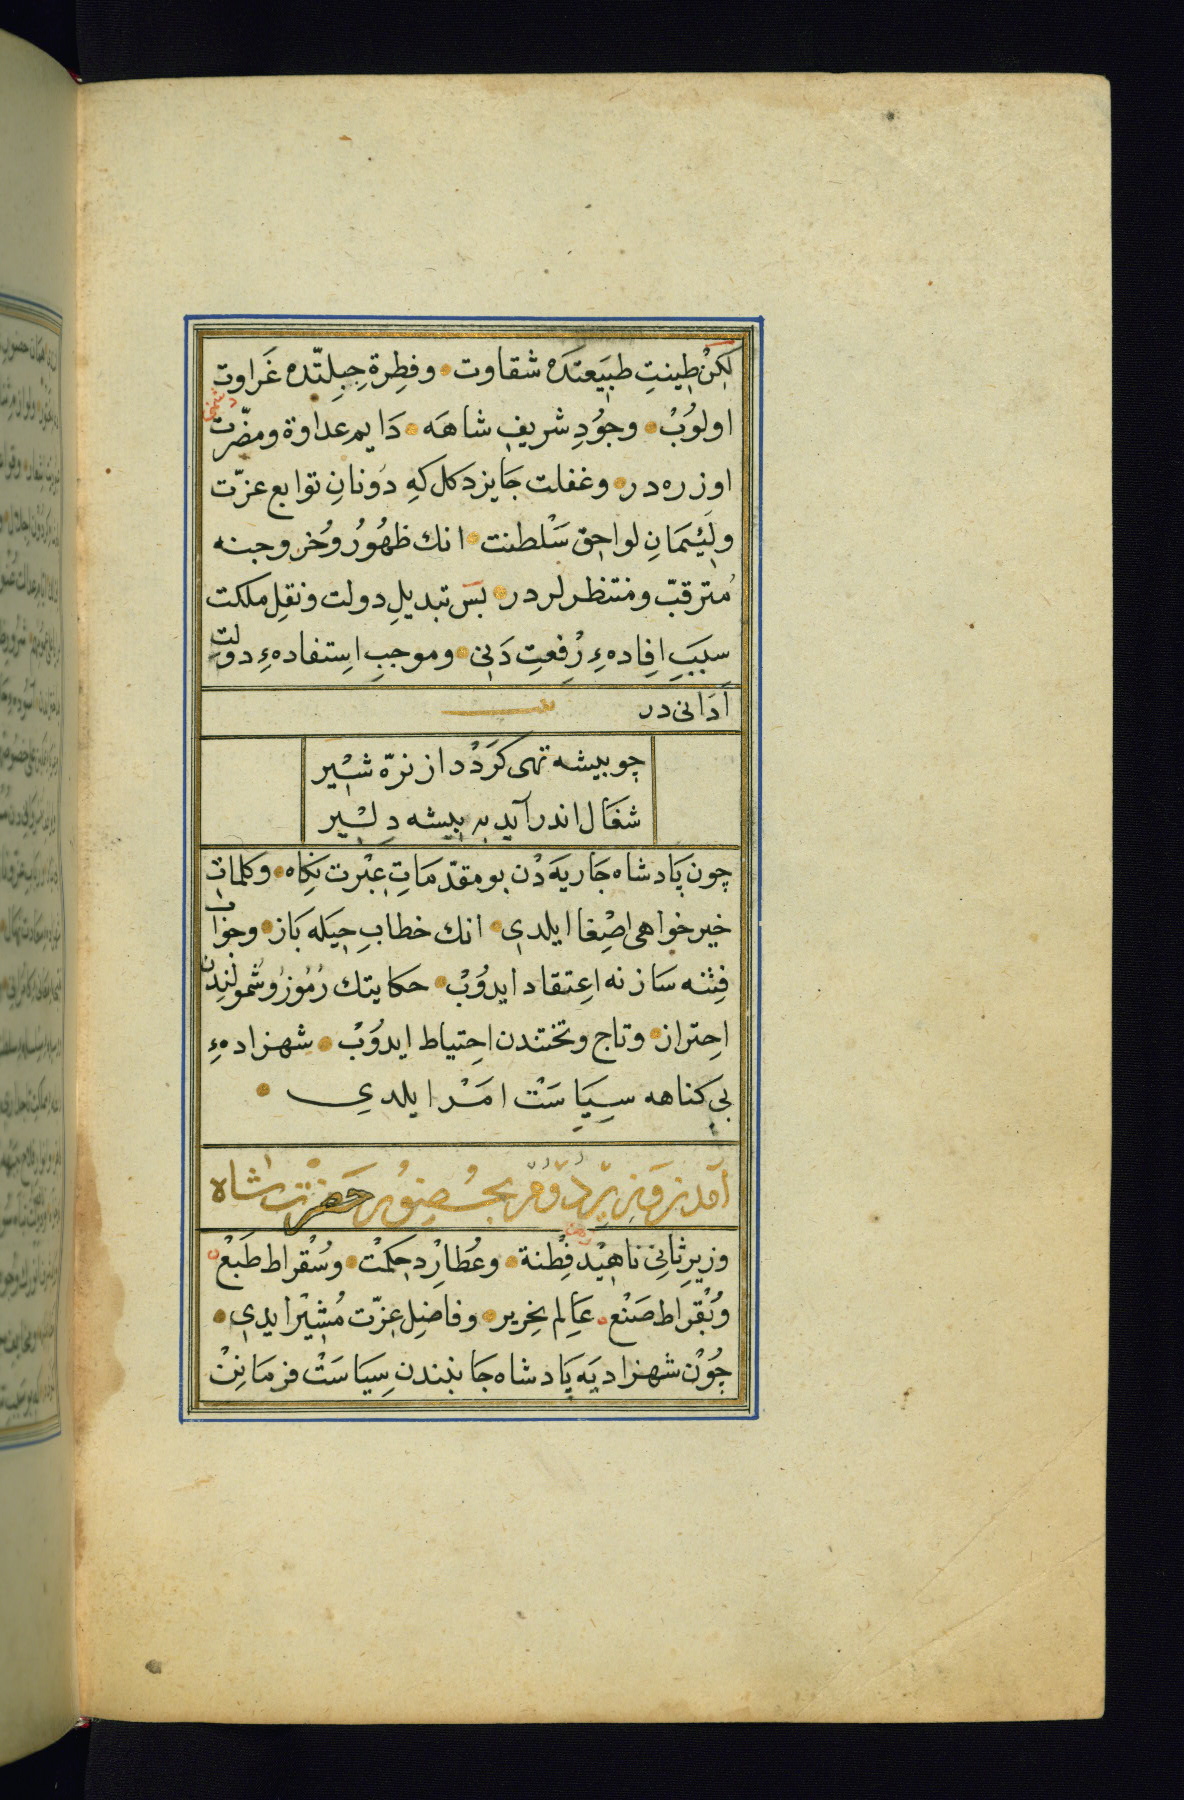 لكِنْ طِينتِ طبيَعتدَه شقاوت وفِطِرة جِبِلتّده غَراوت
اولوُبْ وجوُدِ شريفِ شاهَه دَايم عداوة ومضّرت
اوزره در وغفلت جَايز دكل كهِ دوُنانِ توابع عزّت
ولَئِيمَانِ لواحِق سَلْطنت انك ظهوُرُ وخروجنه
مُترقبّ ومنتظرلردر بسَ تبديلِ دولت ونقلِ مملكت
سببَِ افِادهءِ رِفعتِ دَنِى وموجبِ اسِتفادهءِ دولت
اَدَانى در
چو بيشه تهى كَرَدْد از نرّه شِيْر
شغَال اندر آيد به بيشه دِلِيْر
چون پَادشاه جَاريهَ دْن بو مقدّمَاتِ عِبْرت نكِاه وكلماتِ
خير خواهى اصِْغا ايلدى انك خطابِ حِيَله بَاز وجواب
فِتنه سَازنه اعِتقاد ايدوُبْ حكايتك رُموُز وُشموُلندن
احِتراز وتاج وتختندن احِتياط ايدوُبْ شهزادهءِ
بىِ كناهه سِيَاسَتْ امَرْ ايلدىِ
آمدن وزير دوم بحضور حضرت شاه
وزيرِ ثانِى ناهِيْد فِطْنة وعُطارِْد حِكمَتْ وسُقْراط طَبْع
وبُقْراط صَنْع عَالِم نحِرير وفاضِل عِزّت مُشِيْر ايدىِ
چُوْن شهزاديَه پَادشاه جَانبندن سِيَاسَتْ فرمَانِنْ